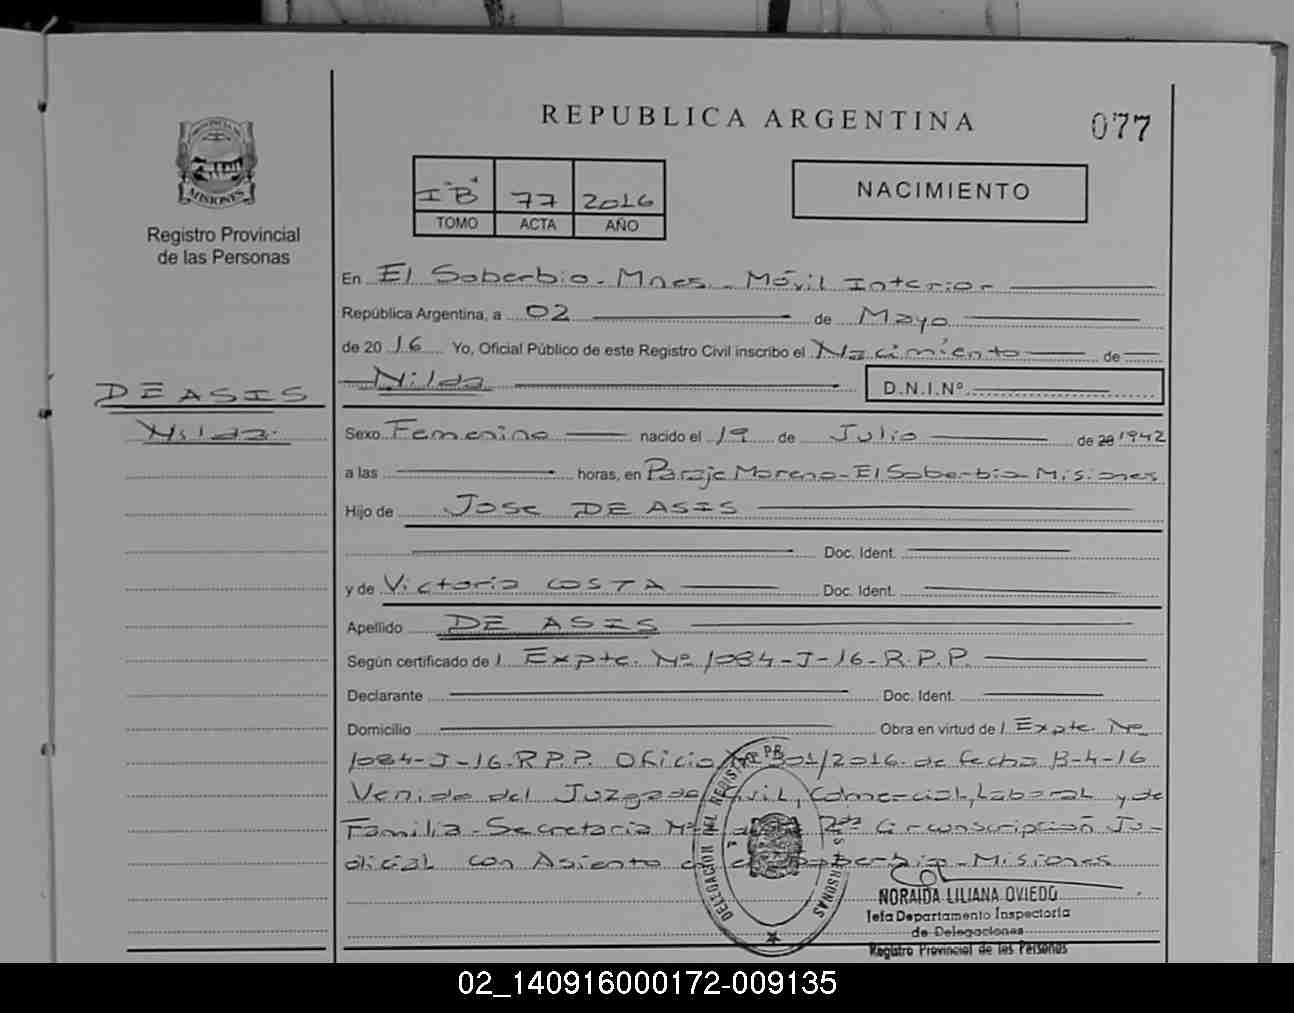 REPUBLICA ARGENTINA
077
PROVINCIA DE
MISIONES
Registro Provincial
de las Personas
I "B" 77 2016
TOMO ACTA AÑO
NACIMIENTO
En El Soberbio - Mnes. - Móvil Interior
República Argentina, a 02 de Mayo
de 2016 Yo, Oficial Público de este Registro Civil inscribo el Nacimiento de
Nilda D.N.I.Nº
DE ASIS
Nilda
Sexo Femenino nacido el 19 de Julio de 20 1942
a las horas, en Paraje Moreno - El Soberbio - Misiones
Hijo de Jose DE ASIS
Doc. Ident.
y de Victoria COSTA Doc. Ident.
Apellido DE ASIS
Según certificado de / Expte. Nº 1084-J-16-R.P.P.
Declarante Doc. Ident.
Domicilio Obra en virtud de / Expte. Nº
1084-J-16-R.P.P. Oficio 301/2016 de fecha 13-4-16
Venido del Juzgado Civil, Comercial, Laboral y de
Familia - Secretaria Nº 2da Circunscripción Ju-
dicial con Asiento en el Soberbio - Misiones
DELEGACION DEL REGISTRO PR. PERSONAS
NORAIDA LILIANA OVIEDO
Jefa Departamento Inspectoria
de Delegaciones
Registro Provincial de les Personas
02_140916000172-009135